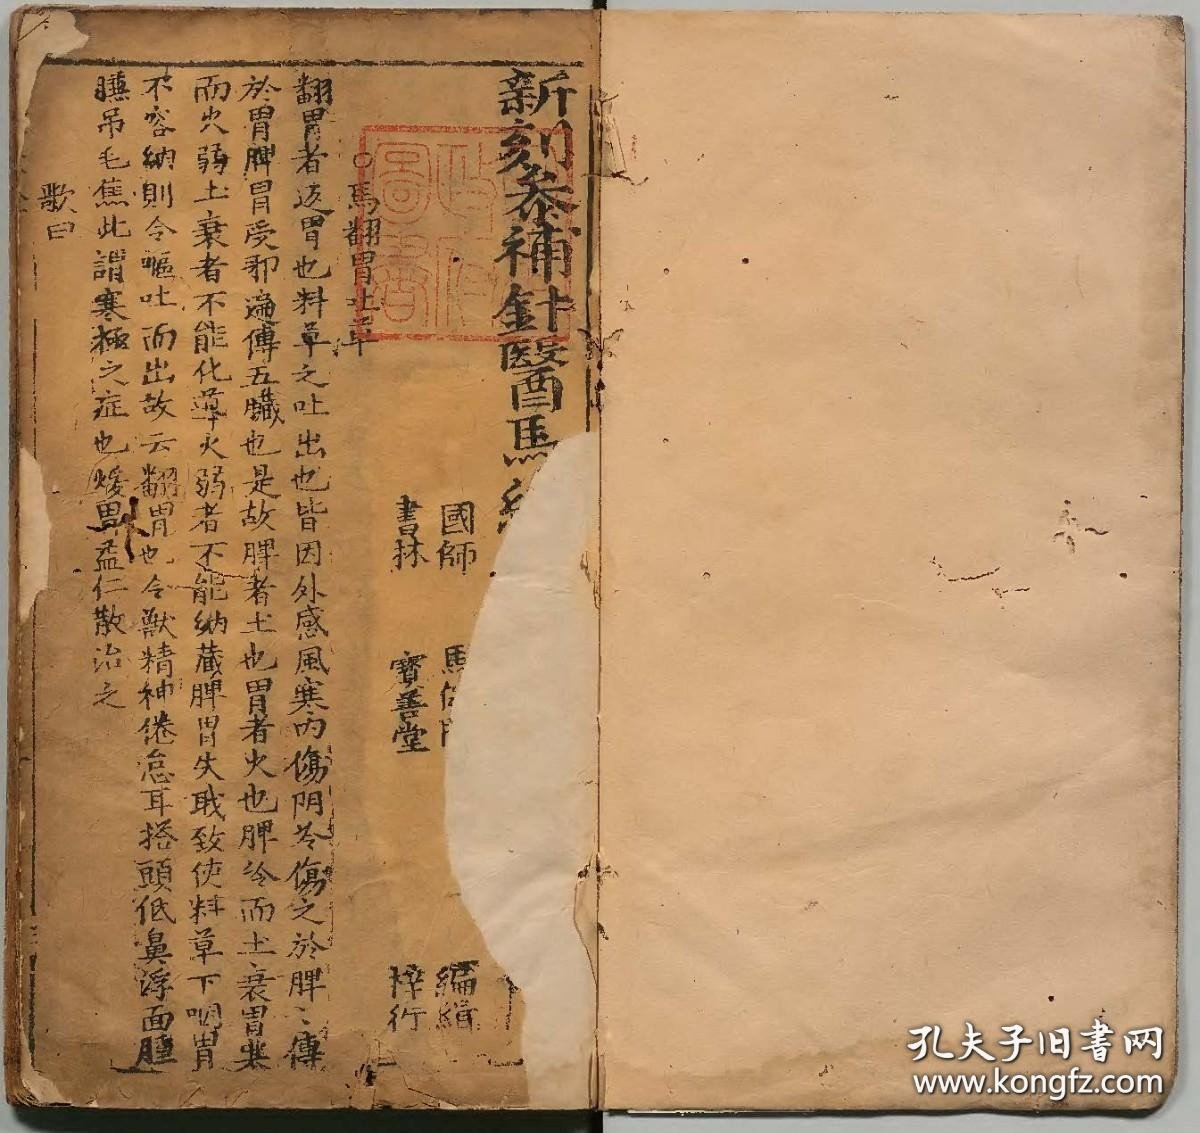 新刻參補針醫馬經
國師 馬 編緝
書林 寶善堂 梓行
○馬翻胃吐草
翻胃者返胃也料草之吐出也皆因外感風寒內傷陰冷傷之於脾〻傳
於胃脾胃受邪遍傳五臟也是故脾者土也胃者火也脾冷而土衰胃寒
而火弱土衰者不能化導火弱者不能納藏脾胃失職致使料草下咽胃
不容納則令嘔吐而出故云翻胃也令獸精神倦怠耳搭頭低鼻浮面腫
臕吊毛焦此謂寒極之症也煖胃益仁散治之
歌曰
孔夫子旧书网
www.kongfz.com